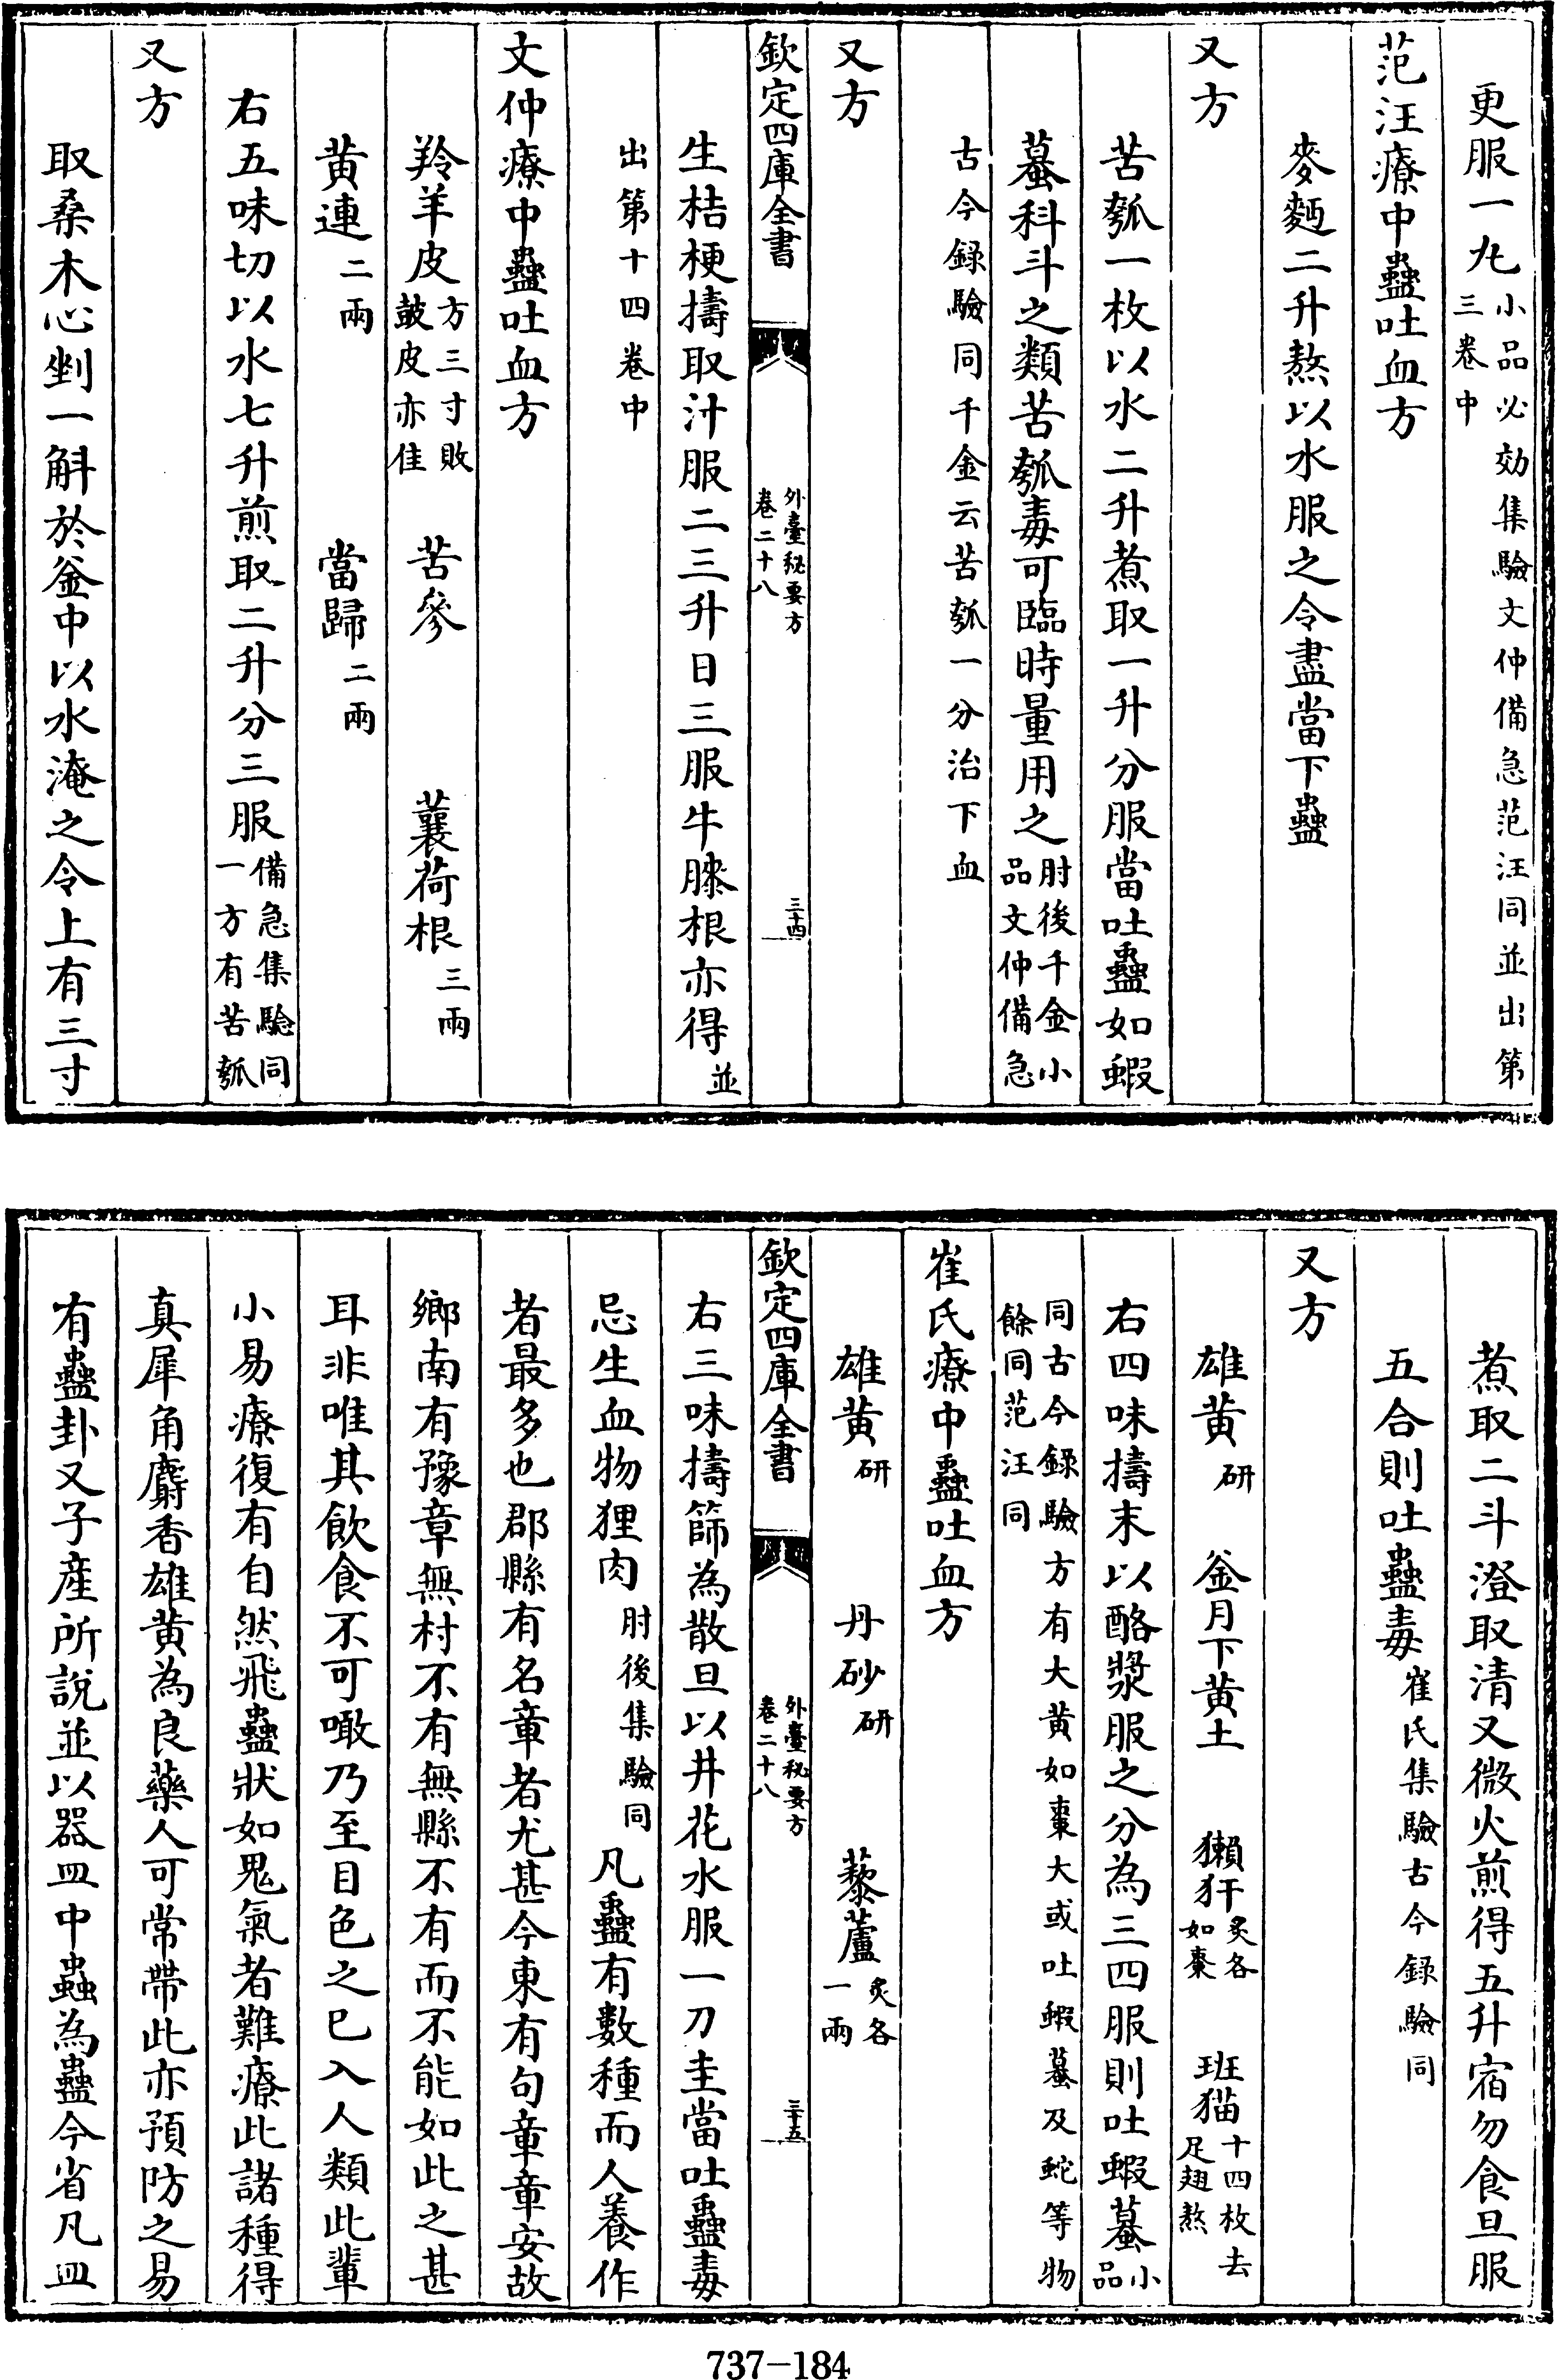 更服一丸小品必効集驗文仲備急范汪同並出第三卷中
范汪療中蠱吐血方
麥麪二升熬以水服之令盡當下蠱
又方
苦瓠一枚以水二升煮取一升分服當吐蠱如蝦
蟇科斗之類苦瓠毒可臨時量用之肘後千金小品文仲備急
古今録驗同千金云苦瓠一分治下血
又方
欽定四庫全書
外臺秘要方
卷二十八
三十四
生桔梗擣取汁服二三升日三服牛膝根亦得並
出第十四卷中
文仲療中蠱吐血方
羚羊皮方三寸敗鼓皮亦佳 苦參 蘘荷根三兩
黄連二兩 當歸二兩
右五味切以水七升煎取二升分三服備急集驗同一方有苦瓠
又方
取桑木心剉一斛於釜中以水淹之令上有三寸
煮取二斗澄取清又微火煎得五升宿勿食旦服
五合則吐蠱毒崔氏集驗古今録驗同
又方
雄黄研 釡月下黄土 獺犴炙各如棗 班猫十四枚去足翅熬
右四味擣末以酪漿服之分為三四服則吐蝦蟇小品
同古今録驗方有大黄如棗大或吐蝦蟇及蛇等物餘同范汪同
崔氏療中蠱吐血方
雄黄研 丹砂研 藜蘆炙各一兩
欽定四庫全書
外臺秘要方
卷二十八
三十五
右三味擣篩為散旦以井花水服一刀圭當吐蠱毒
忌生血物狸肉肘後集驗同凡蠱有數種而人養作
者最多也郡縣有名章者尤甚今東有句章章安故
鄉南有豫章無村不有無縣不有而不能如此之甚
耳非唯其飲食不可噉乃至目色之已入人類此輩
小易療復有自然飛蠱狀如鬼氣者難療此諸種得
真犀角麝香雄黄為良藥人可常帶此亦預防之易
有蠱卦又子産所説並以器皿中蟲為蠱今省凡皿
737-184